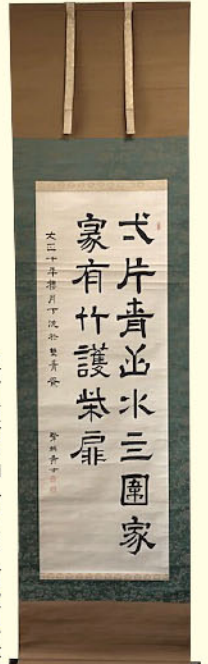 弌片青山水三圍家
家有竹護柴扉
大正十年櫻月下浣於雙青